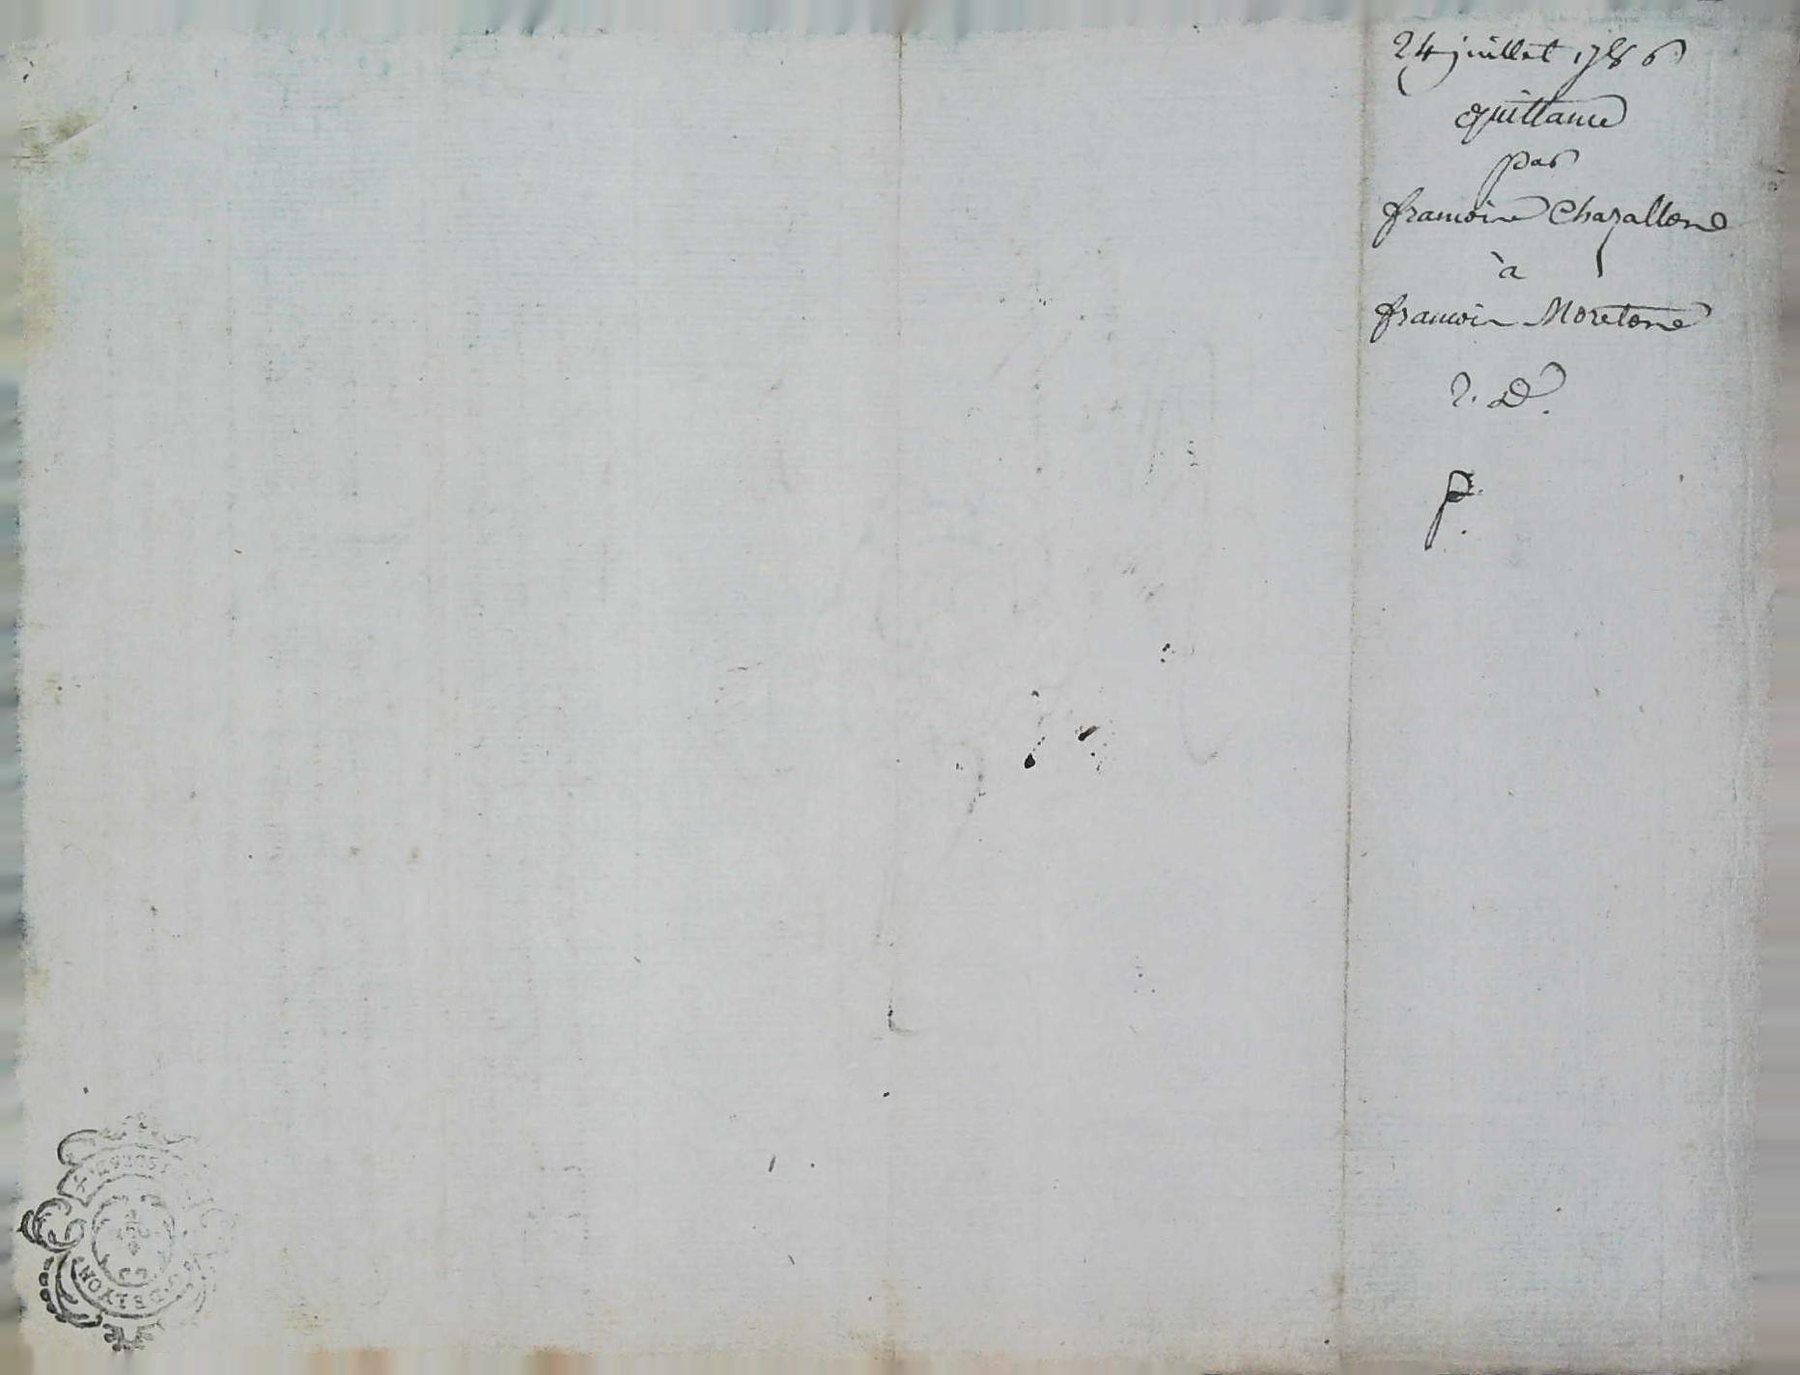 24 juillet 1786
quittance
par
francoise Chazallone
à
francois Moretone
2. D.
P.